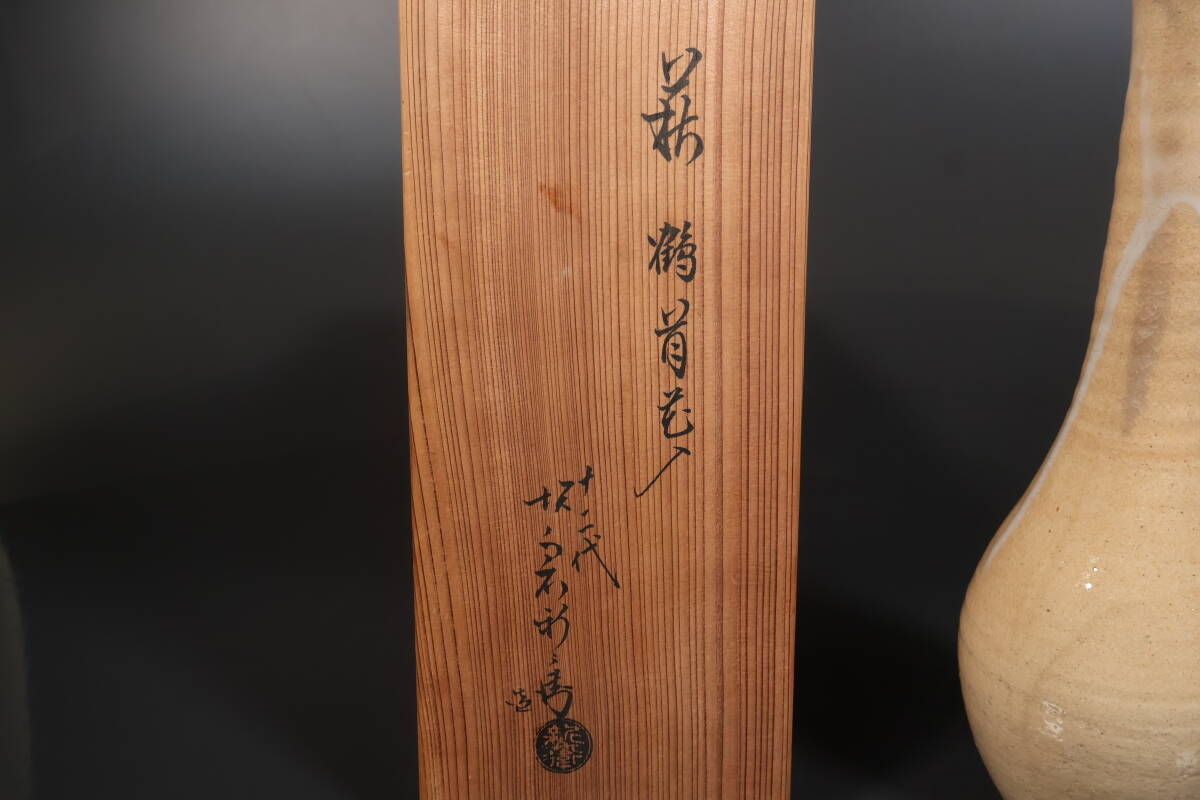 萩 鶴首花入
十二代
坂高麗左衛門
造